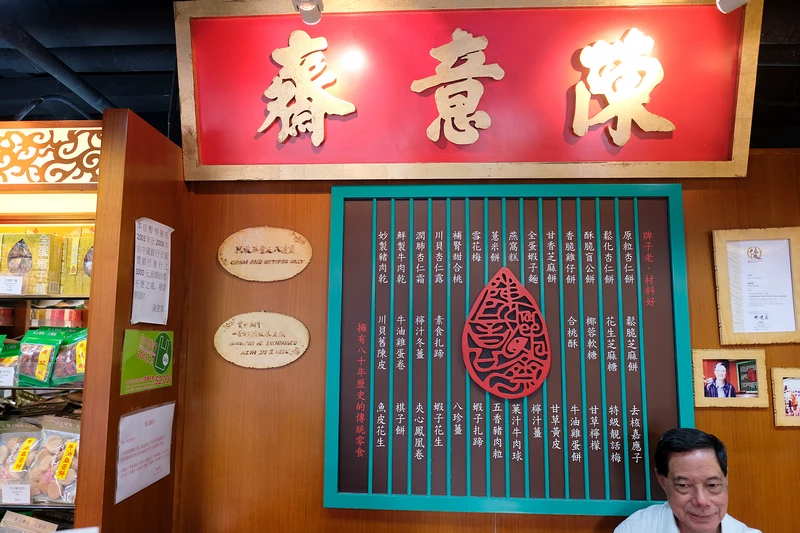 陳意齋
牌子老·材料好
原粒杏仁餅 鬆脆芝麻餅 去核嘉應子
鬆化杏仁餅 花生芝麻糖 特級靚話梅
酥脆盲公餅 椰蓉軟糖 甘草檸檬
香脆雞仔餅 合桃酥 牛油雞蛋餅
甘香芝麻餅 甘草黃皮
全蛋蝦子麵 檸汁薑
燕窩糕 菓汁牛肉球
薏米餅 五香豬肉粒
雪花梅 蝦子扎蹄
補腎甜合桃 八珍薑
川貝杏仁露 素食扎蹄 蝦子花生
潤肺杏仁霜 檸汁冬薑 夾心鳳凰卷
鮮製牛肉乾 牛油雞蛋卷 棋子餅
妙製豬肉乾 川貝舊陳皮 魚皮花生
擁有八十年歷史的傳統零食
CASH AND OCTOPUS ONLY